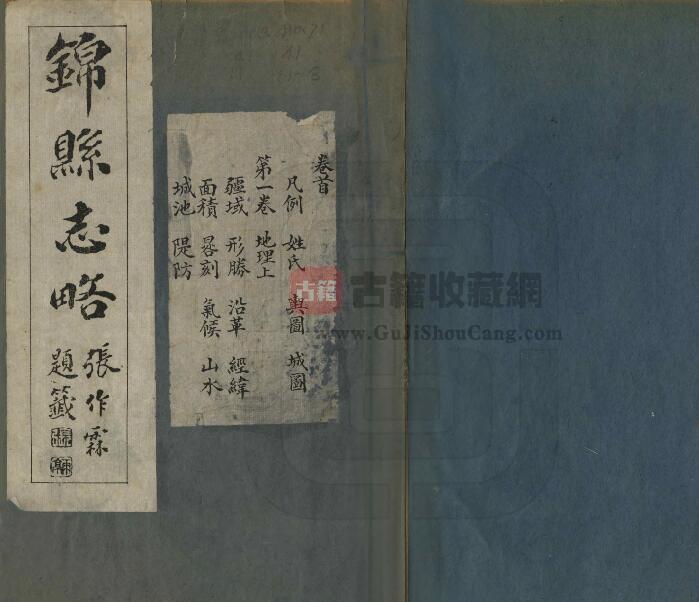 錦縣志略
張作霖
題籤
卷首
凡例 姓氏 輿圖 城圖
第一卷 地理上
疆域 形勝 沿革 經緯
面積 晷刻 氣候 山水
城池 隄防
古籍
古籍收藏網
www.GuJiShouCang.com